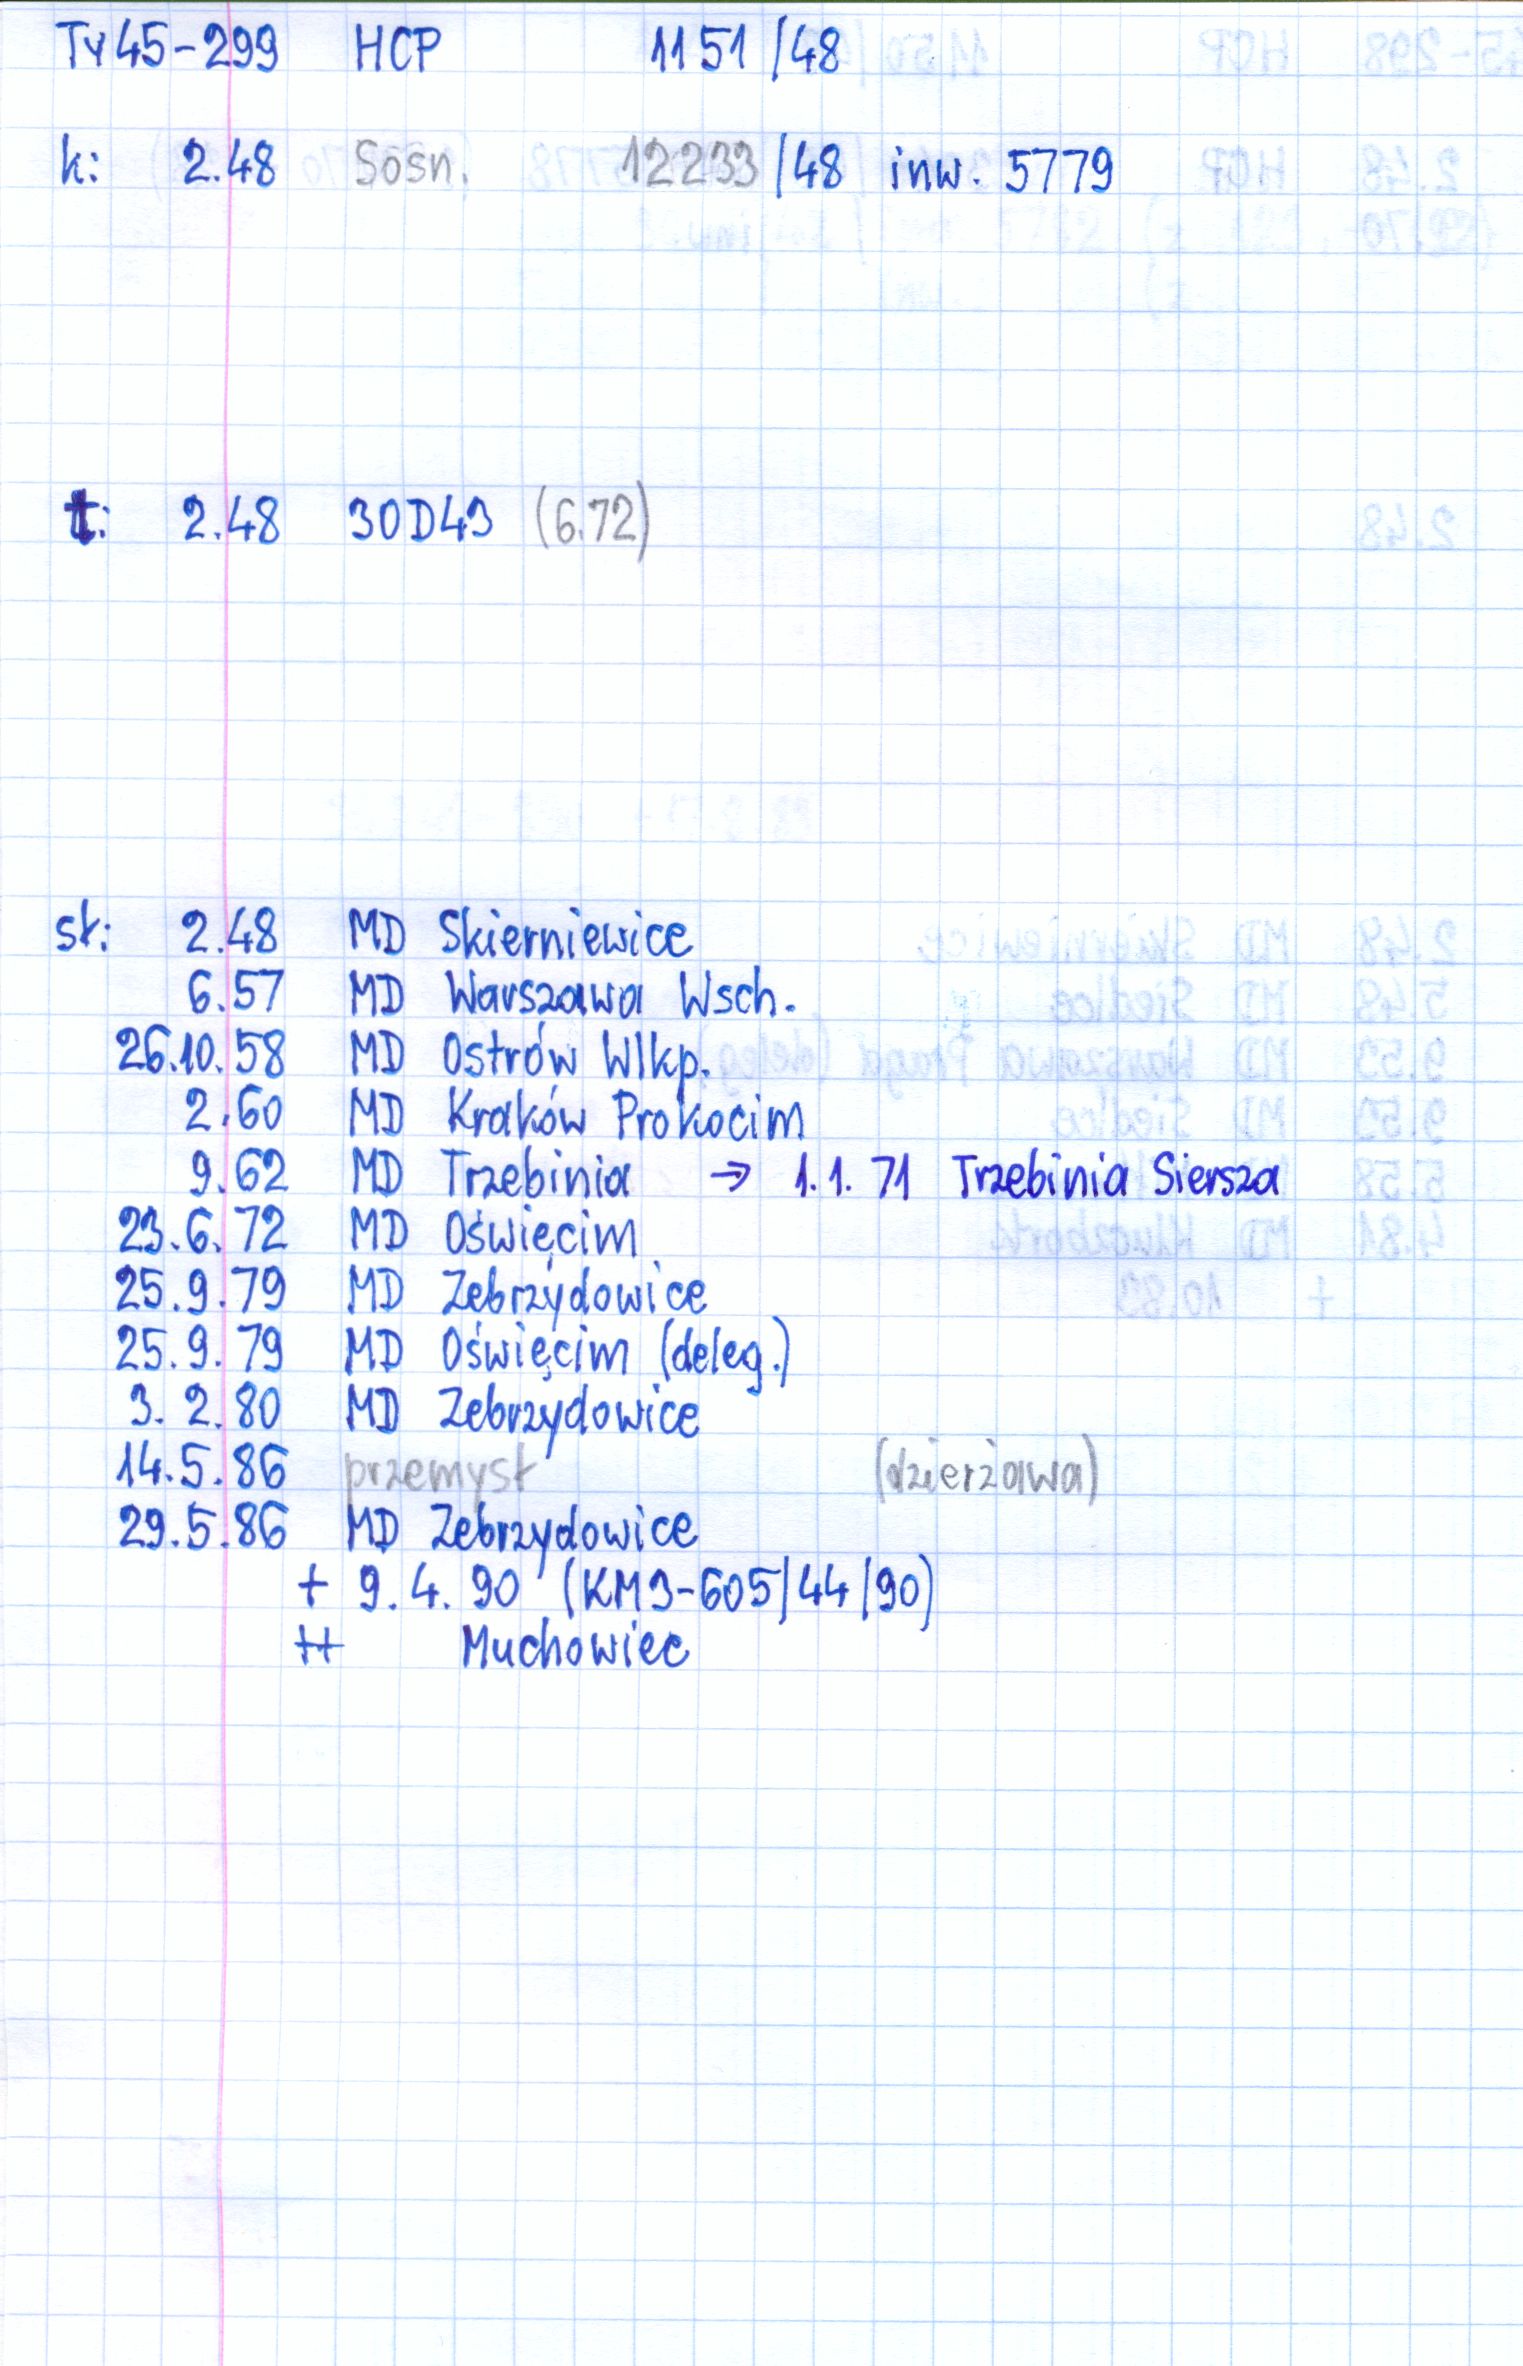 Ty45-299 HCP 1151/48
k: 2.48 Sosn. 12233/48 inw. 5779
t: 2.48 30D43 (6.72)
st: 2.48 MD Skierniewice
6.57 MD Warszawa Wsch.
26.10.58 MD Ostrów Wlkp.
2.60 MD Kraków Prokocim
9.62 MD Trzebinia → 1.1.71 Trzebinia Siersza
23.6.72 MD Oświęcim
25.9.79 MD Zebrzydowice
25.9.79 MD Oświęcim (deleg.)
3.2.80 MD Zebrzydowice
14.5.86 przemysł (dzierżawa)
29.5.86 MD Zebrzydowice
+ 9.4.90 (KM3-605/44/90)
++ Muchowiec